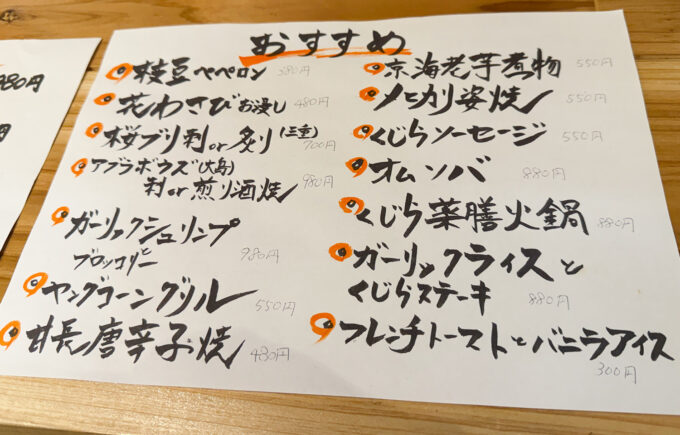 980円
円
おすすめ
枝豆ペペロン 380円
花わさびお浸し 480円
桜ブリ刺or炙り(三重) 700円
アブラボウズ(大島)
刺or煎り酒焼 980円
ガーリックシュリンプ
とブロッコリー 980円
ヤングコーングリル 550円
甘長唐辛子焼 480円
京海老芋煮物 550円
メヒカリ姿焼 550円
くじらソーセージ 550円
オムソバ 880円
くじら薬膳火鍋 880円
ガーリックライスと
くじらステーキ 880円
フレンチトーストとバニラアイス
300円